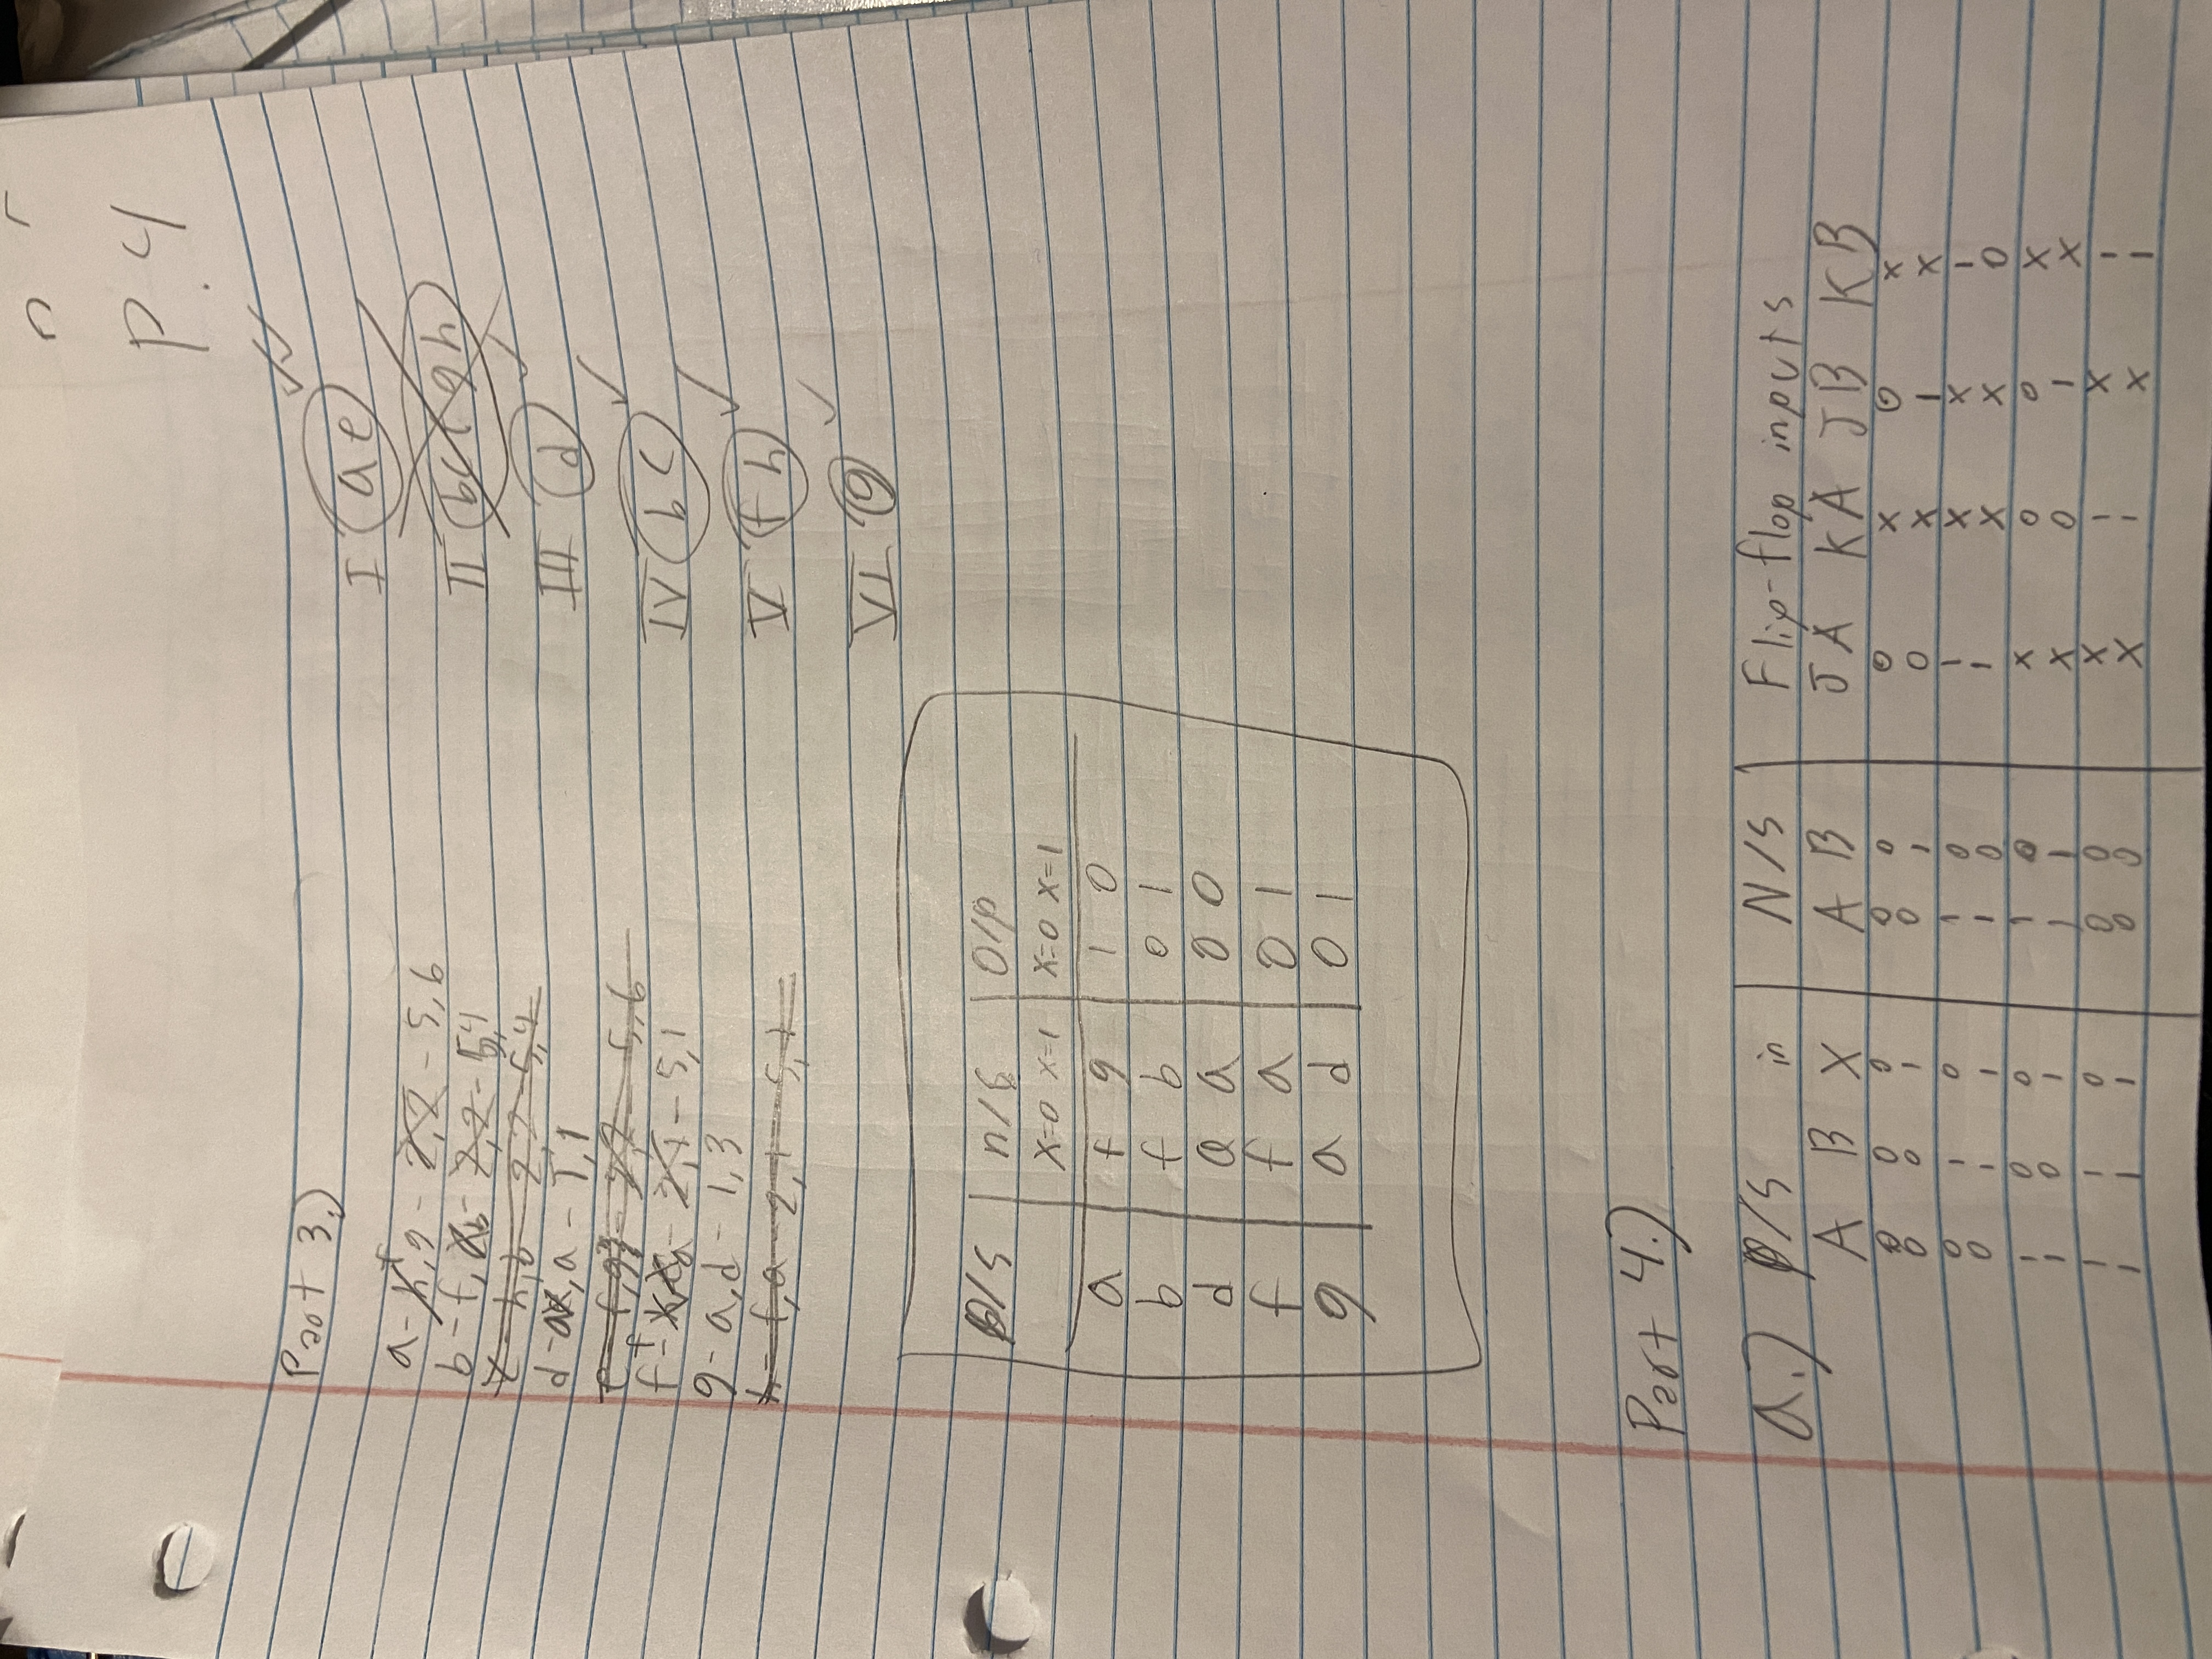 P.4
Part 3.)
a - f, g - 2,2 - 5,6
b - f, b - 2,2 - 5,4
c - h, b - 2,2 - 5,4
d - a, a - 1,1
e - f, g - 2,2 - 5,6
f - f, a - 2,1 - 5,1
g - a, d - 1,3
h - f, a - 2,1 - 5,1
I a e
II b c f g h
III d
IV b c
V f h
VI g
p/s n/s o/p
x=0 x=1 x=0 x=1
a f g 1 0
b f b 0 1
d a a 0 0
f f a 0 1
g a d 0 1
Part 4.)
a.) p/s in N/S Flip-flop inputs
A B X A B JA KA JB KB
0 0 0 0 0 0 x 0 x
0 0 1 0 1 0 x 1 x
0 1 0 1 0 1 x x 1
0 1 1 1 0 1 x x 0
1 0 0 1 0 x 0 0 x
1 0 1 1 1 x 0 1 x
1 1 0 0 0 x 1 x 1
1 1 1 0 0 x 1 x 1